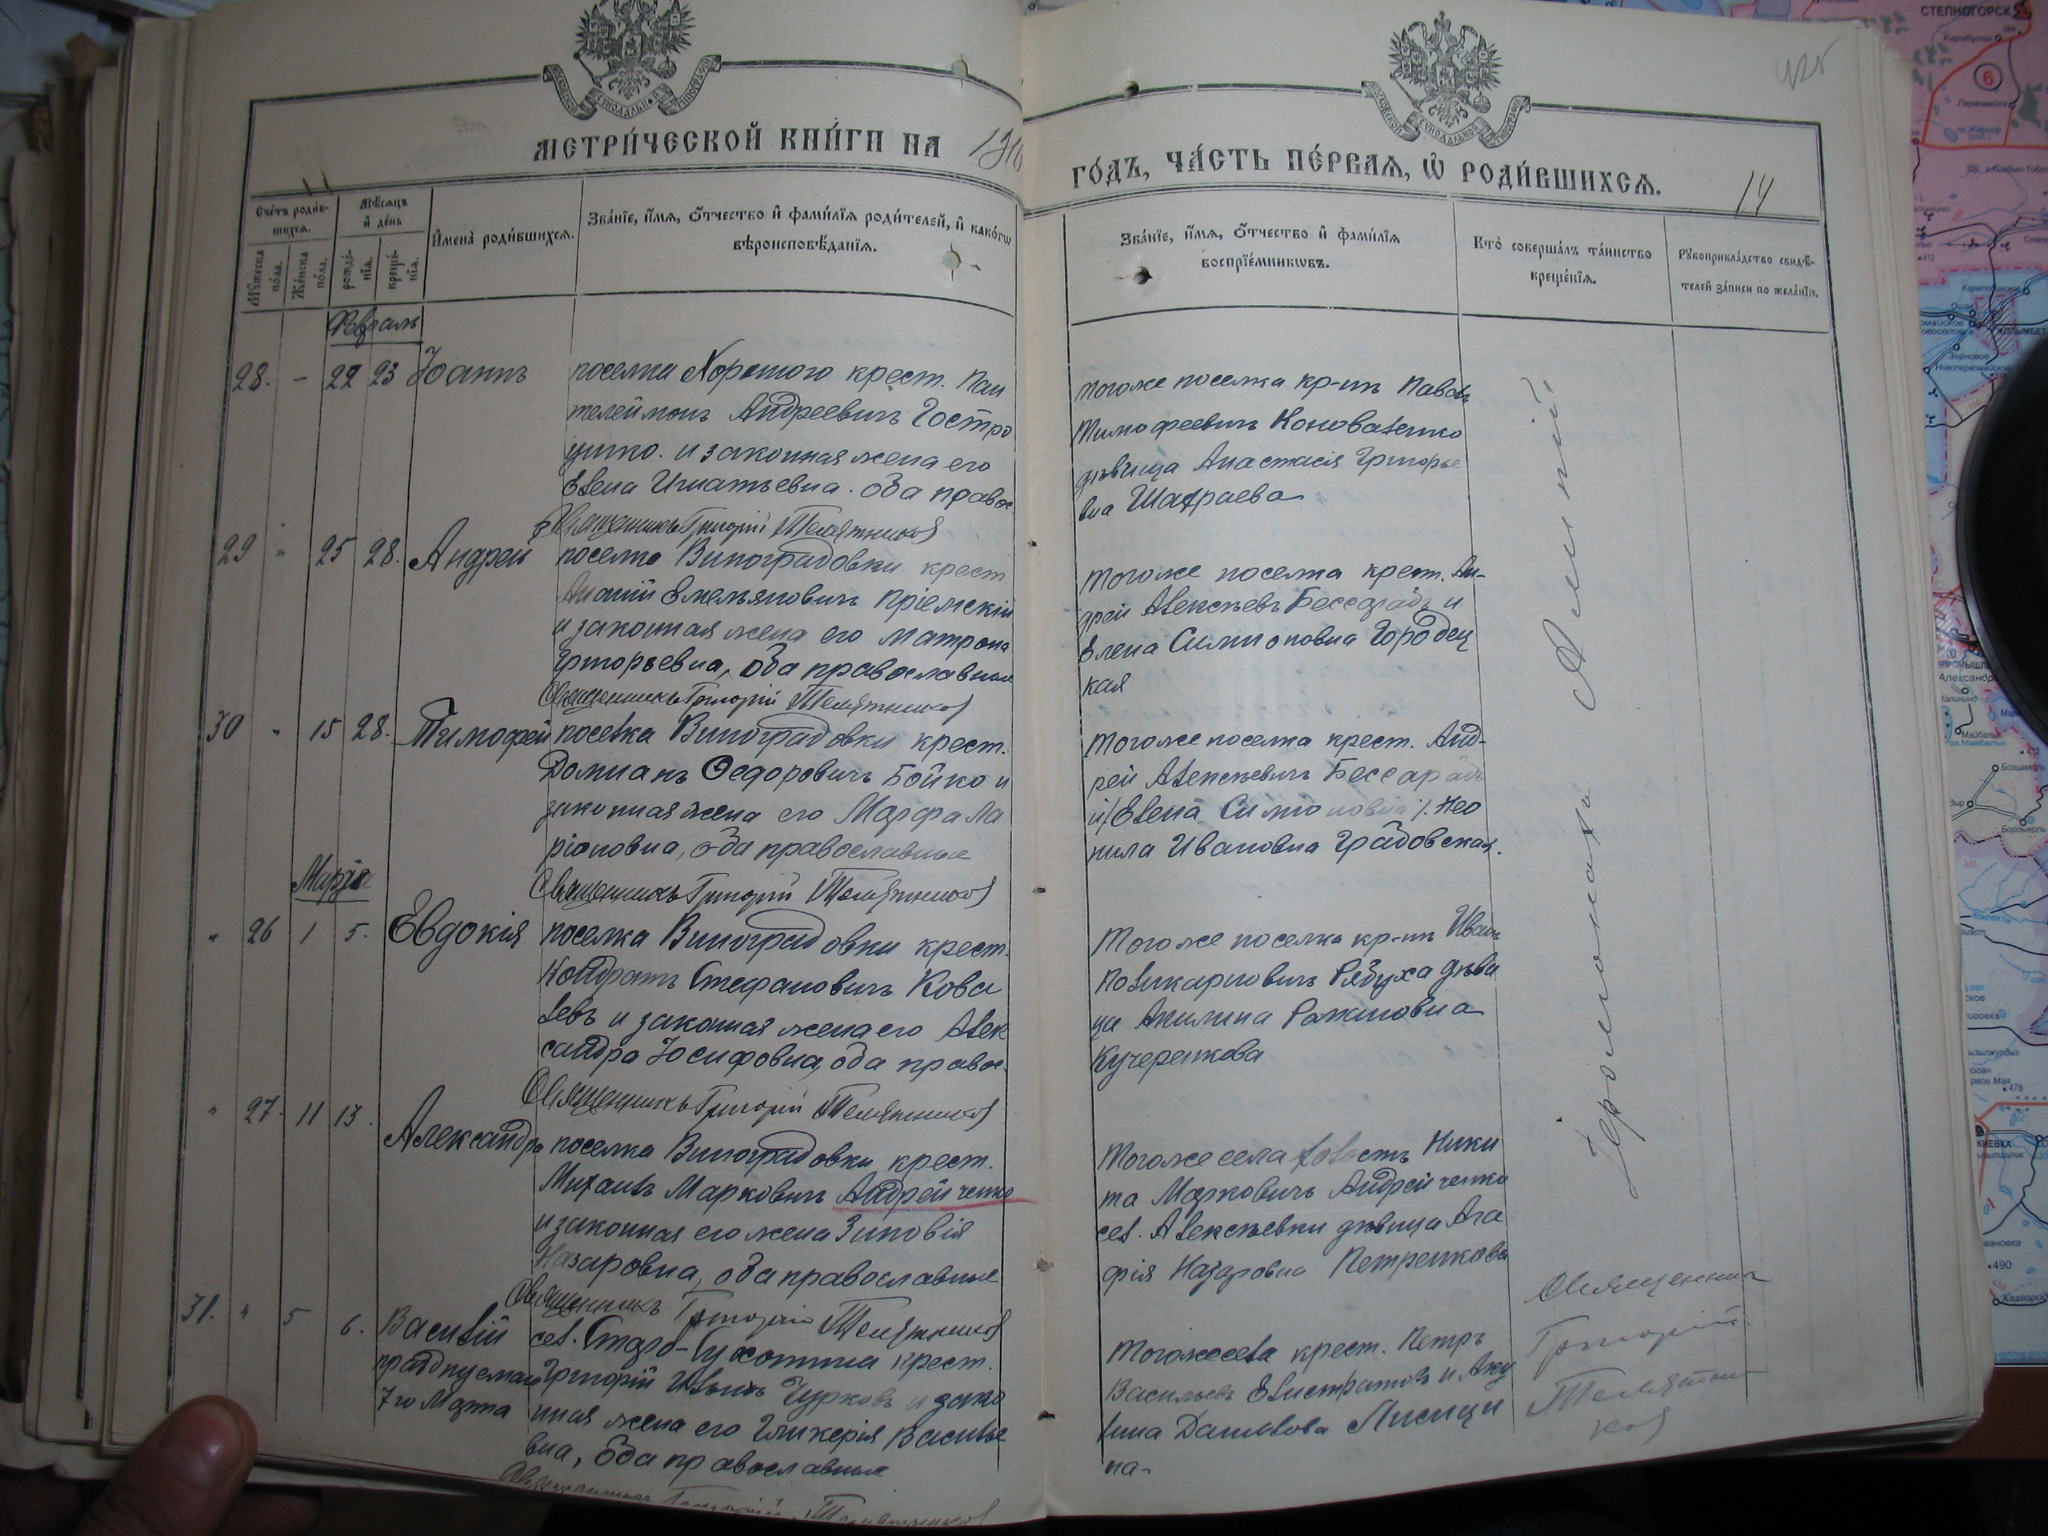 МЕТРИ́ЧЕСКОЙ КНИ́ГИ НА 1910
ГО́ДЪ, ЧА́СТЬ ПЕ́РВАЯ, Ѡ҆ РОДИ́ВШИХСЯ.
14
Сче́тъ роди́в-
шихся.
Мѣ́сяцъ
и҆ де́нь
И҆мена̀ роди́вшихся.
Зва́нїе, и҆́мя, ѻ҆́тчество и҆ фами́лїя роди́телей, и҆ како́гѡ
вѣроисповѣ́данїя.
Мꙋ́жеска
по́ла.
Же́нска
по́ла.
рожде́-
нїя.
креще́-
нїя.
Зва́нїе, и҆́мя, ѻ҆́тчество и҆ фами́лїя
воспрїе́мникѡвъ.
Кто̀ соверша́лъ та́инство
креще́нїя.
Рꙋкоприкла́дство свидѣ́-
телей за́писи по жела́нїю.
Февраль
28. — 22 23 Іоаннъ
поселка Хорошого крест. Пан
телеймонъ Андреевичъ Гостро
ушко. и законная жена его
Елена Игнатьевна. оба правос.
Священникъ Григорій Телятников
тогоже поселка кр-нъ Павелъ
Тимофеевичъ Коноваленко
дѣвица Анастасія Григорье
вна Шатраева
29 " 25 28. Андрей
поселка Виноградовки крест.
Ананій Емельяновичъ Пріемскій
и законная жена его Матрона
Григорьевна, оба православные
Священникъ Григорій Телятников
тогоже поселка крест. Ан-
дрей Алексѣевъ Бессарабъ и
Елена Симионовна Городец
кая
30 " 15 28. Тимофей
поселка Виноградовки крест.
Домианъ Ѳедоровичъ Бойко и
законная жена его Марфа Ла
ріоновна, оба православные
Священникъ Григорій Телятников
тогоже поселка крест. Анд-
рей Алексѣевичъ Бессарабъ
и /Елена Симіоновна/. Нео
нила Ивановна Градовская.
Мартъ
" 26 1 5. Евдокія
поселка Виноградовки крест.
Кондратъ Стефановичъ Кова
левъ и законная жена его Алек
сандра Іосифовна, оба правос.
Священникъ Григорій Телятников
Тогоже поселка кр-нъ Иванъ
Поликарповичъ Рябуха дѣви
ца Акилина Романовна
Кучеренкова
" 27. 11 13. Александръ
поселка Виноградовки крест.
Михаилъ Марковичъ Андрейченко
и законная его жена Зиновія
Назаровна, оба православные
Священникъ Григорій Телятников
Тогоже села Ники
та Марковичъ Андрейченко
сел. Алексѣевки дѣвица Ага
фія Назаровна Петренкова
31. " 5 6. Василій
празднуемый
7го Марта
сел. Старо-Сухотина крест.
Григорій Ильинъ Чурковъ и зако
нная жена его Гликерія Василье
вна, оба православные
Священникъ Григорій Телятников
Тогоже села крест. Петръ
Васильевъ Елистратовъ и Аку
лина Данилова Лисици
на-
Іеромонахъ
Священникъ
Григорій
Телятни
ков